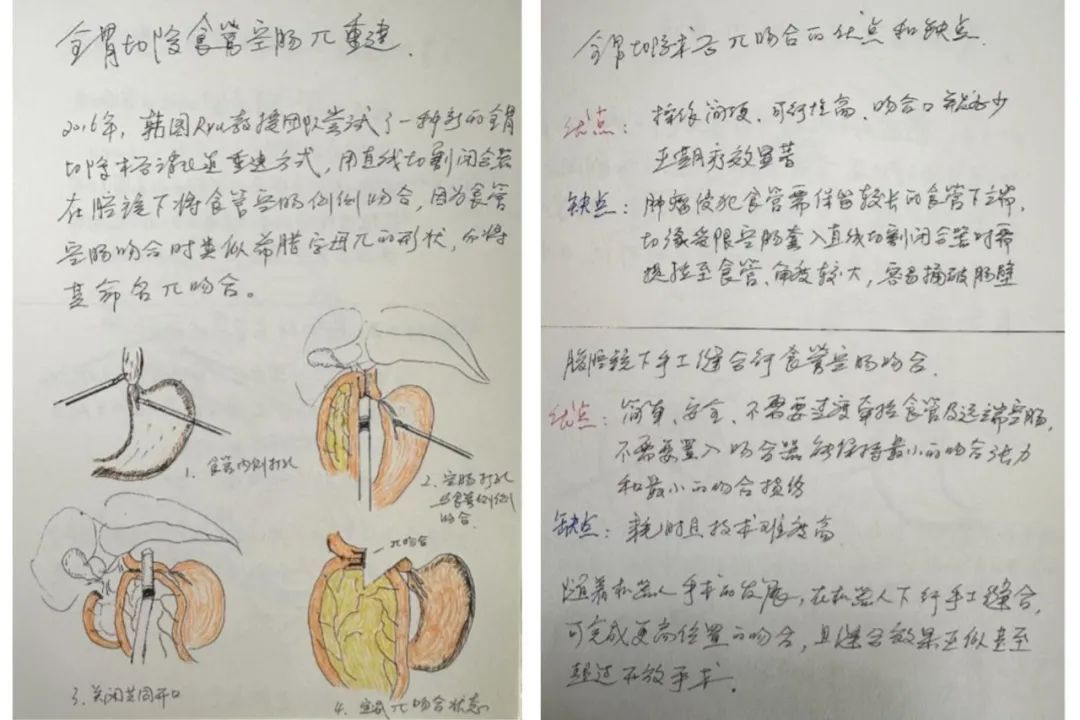 全胃切除食管空肠π重建.
2016年，韩国Ryu教授团队尝试了一种新的全胃
切除术后消化道重建方式，用直线切割闭合器
在腔镜下将食管空肠侧侧吻合，因为食管
空肠吻合时类似希腊字母π的形状，亦将
其命名π吻合。
1、食管内侧打孔
2、空肠打孔
与食管侧侧
吻合.
3、关闭共同开口
一π吻合
4、完成π吻合状态
全胃切除术后π吻合的优点和缺点.
优点：操作简便、可行性高、吻合口
近期疗效显著
缺点：肿瘤侵犯食管需保留较长的食管下端，
切缘受限空肠套入直线切割闭合器时需
提拉至食管、角度较大，容易捅破肠壁
腹腔镜下手工缝合行食管空肠吻合.
优点：简单、安全、不需要过度牵拉食管及远端空肠，
不需要置入吻合器 能保持最小的吻合张力
和最小的吻合损伤
缺点：耗时且技术难度高
随着机器人手术的发展，在机器人下行手工缝合，
可完成更高位置的吻合，且缝合效果近似甚至
超过开放手术.